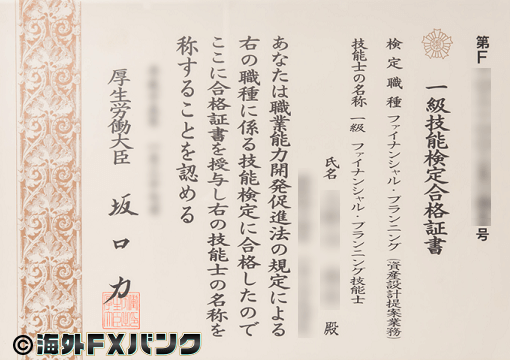 第F
号
一級技能検定合格証書
検定職種 ファイナンシャル・プランニング (資産設計提案業務)
技能士の名称 一級 ファイナンシャル・プランニング技能士
氏名
殿
あなたは職業能力開発促進法の規定による
右の職種に係る技能検定に合格したので
ここに合格証書を授与し右の技能士の名称を
称することを認める
厚生労働大臣 坂口力
©海外FXバンク